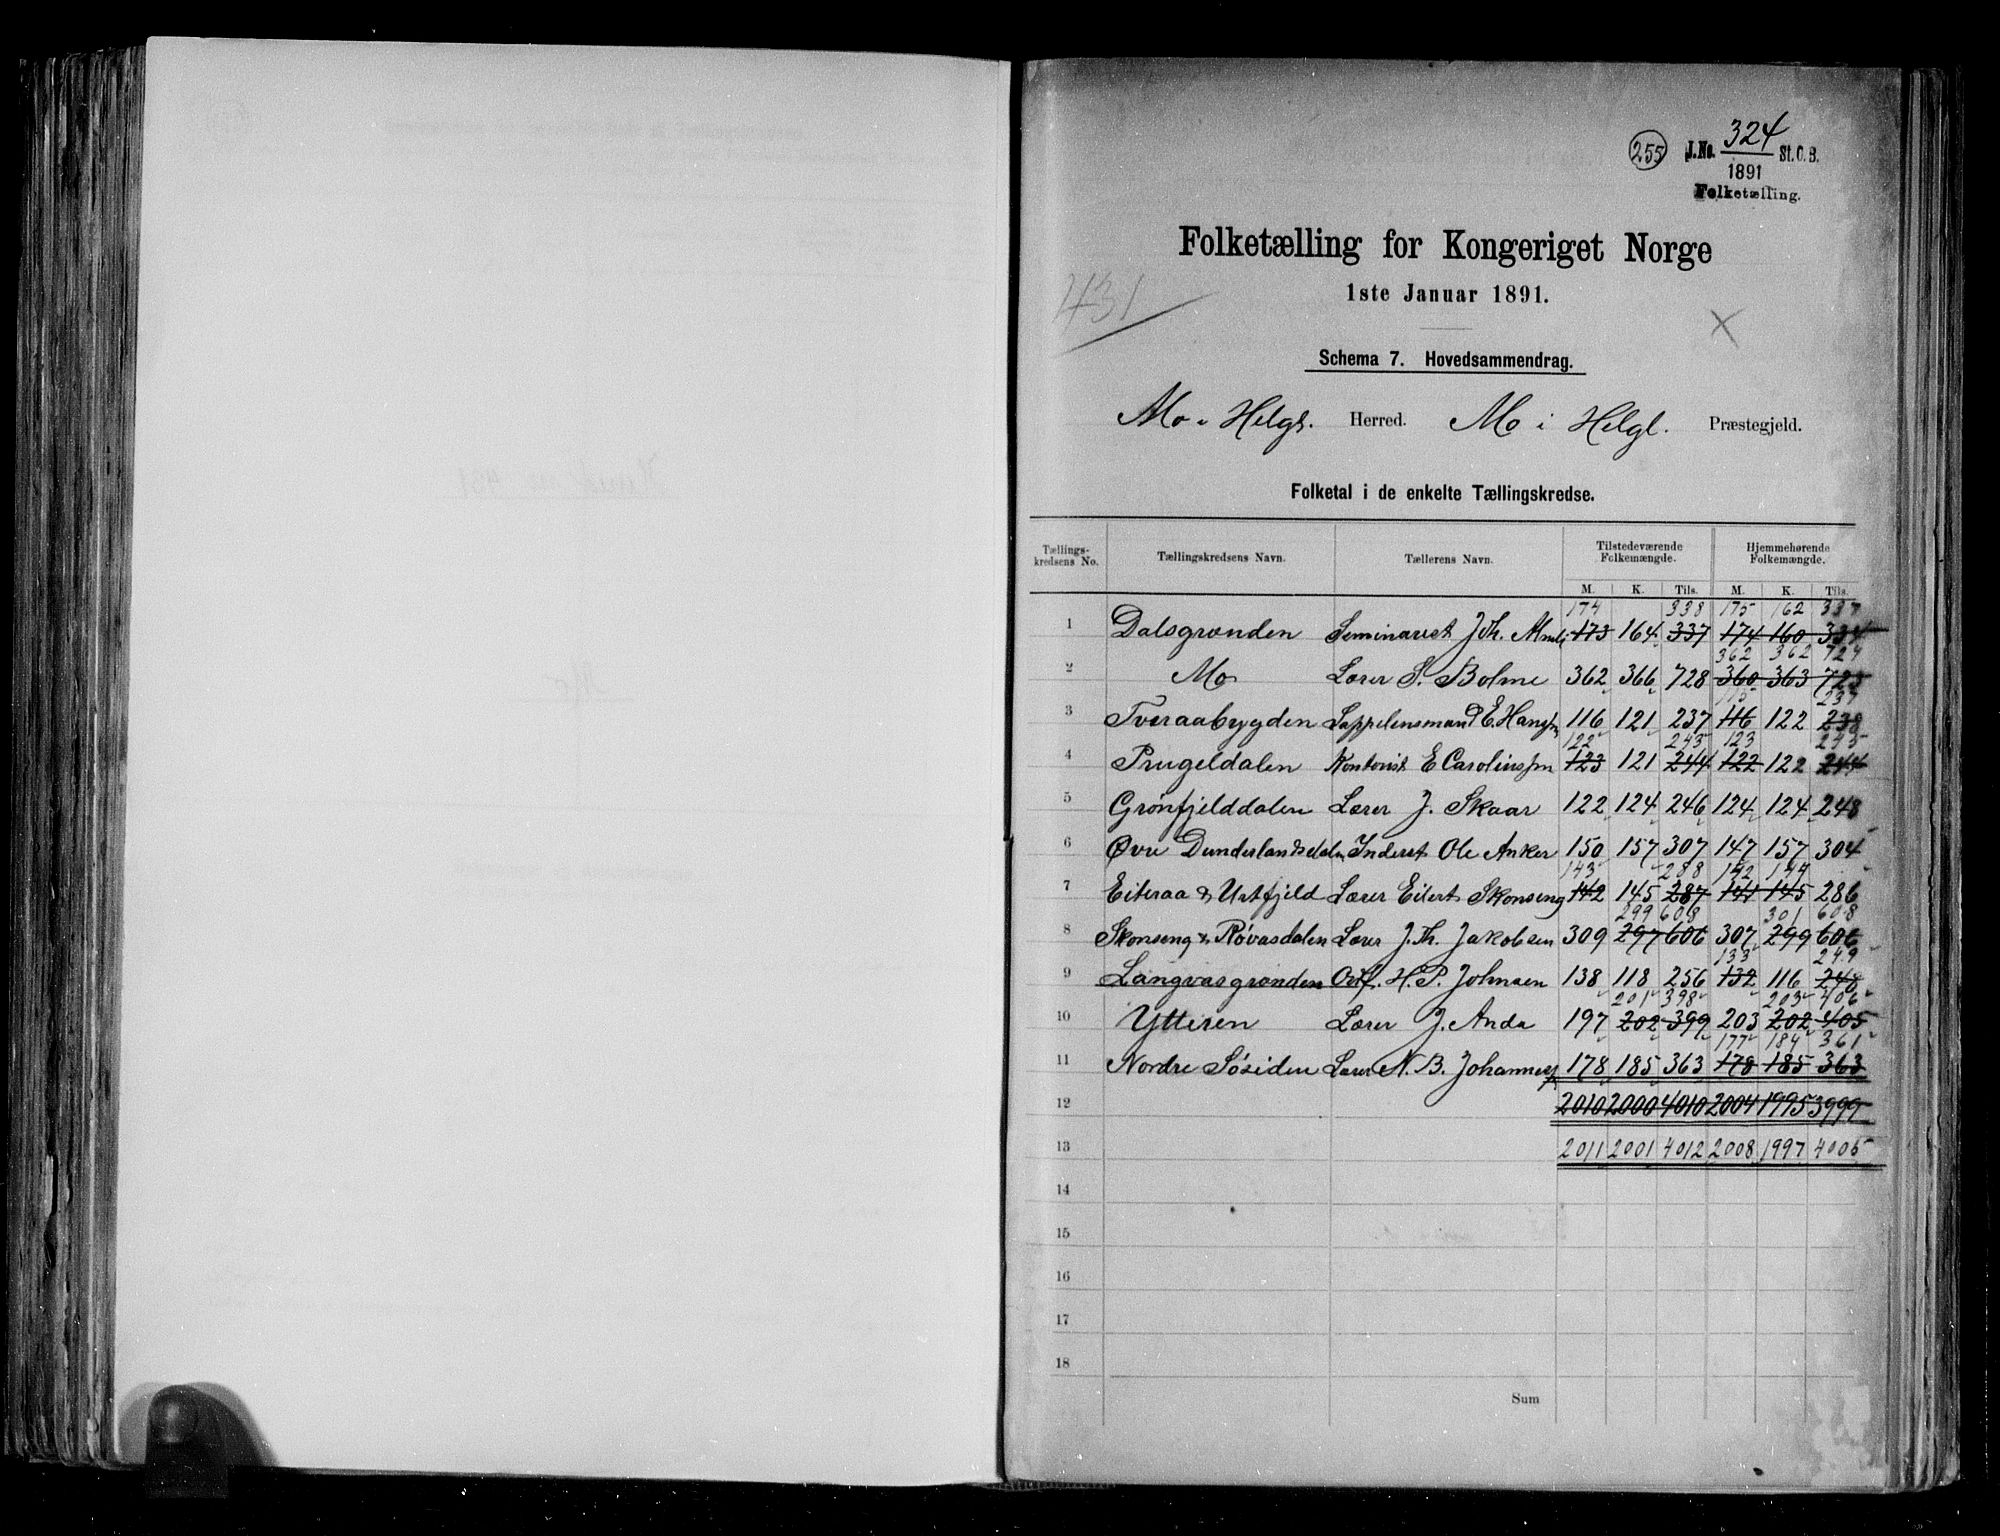 255 J.No. 324 St. C. B.
1891
Folketælling.
Folketælling for Kongeriget Norge
431
1ste Januar 1891.
Schema 7. Hovedsammendrag.
Mo i Helgl. Herred. Mo i Helgl. Præstegjeld.
Folketal i de enkelte Tællingskredse.
Tællings- Tilstedeværende Hjemmehørende
kredsens No. Tællingskredsens Navn. Tællerens Navn. Folkemængde. Folkemængde.
M. K. Tils. M. K. Tils.
174 338 175 162 337
1 Dalsgrænden Seminarist Joh. 173 164 337 174 160 334
362 362 724
2 Mo Lærer S. Bolme 362 366 728 360 363 723
115 237
3 Tveraabygden E. Hansen 116 121 237 116 122 238
122 243 123 245
4 Prugeldalen Kontorist E Carolinssen 123 121 244 122 122 244
5 Grønfjelddalen Lærer J. Skaar 122 124 246 124 124 248
6 Øvre Dunderlandsdalen Inderst Ole Anker 150 157 307 147 157 304
143 288 142 144
7 Eiteraa & Urtfjeld Lærer Eilert Skonseng 142 145 287 141 145 286
299 608 301 608
8 Skonseng & Røvasdalen Lærer J. Th. Jakobsen 309 297 606 307 299 606
133 249
9 Langvasgrænden H. P. Johnsen 138 118 256 132 116 248
201 398 203 406
10 Ytteren Lærer J. Anda 197 202 399 203 202 405
177 184 361
11 Nordre Søsiden Lærer N. B. Johannes 178 185 363 178 185 363
12 2010 2000 4010 2004 1995 3999
13 2011 2001 4012 2008 1997 4005
14
15
16
17
18
Sum